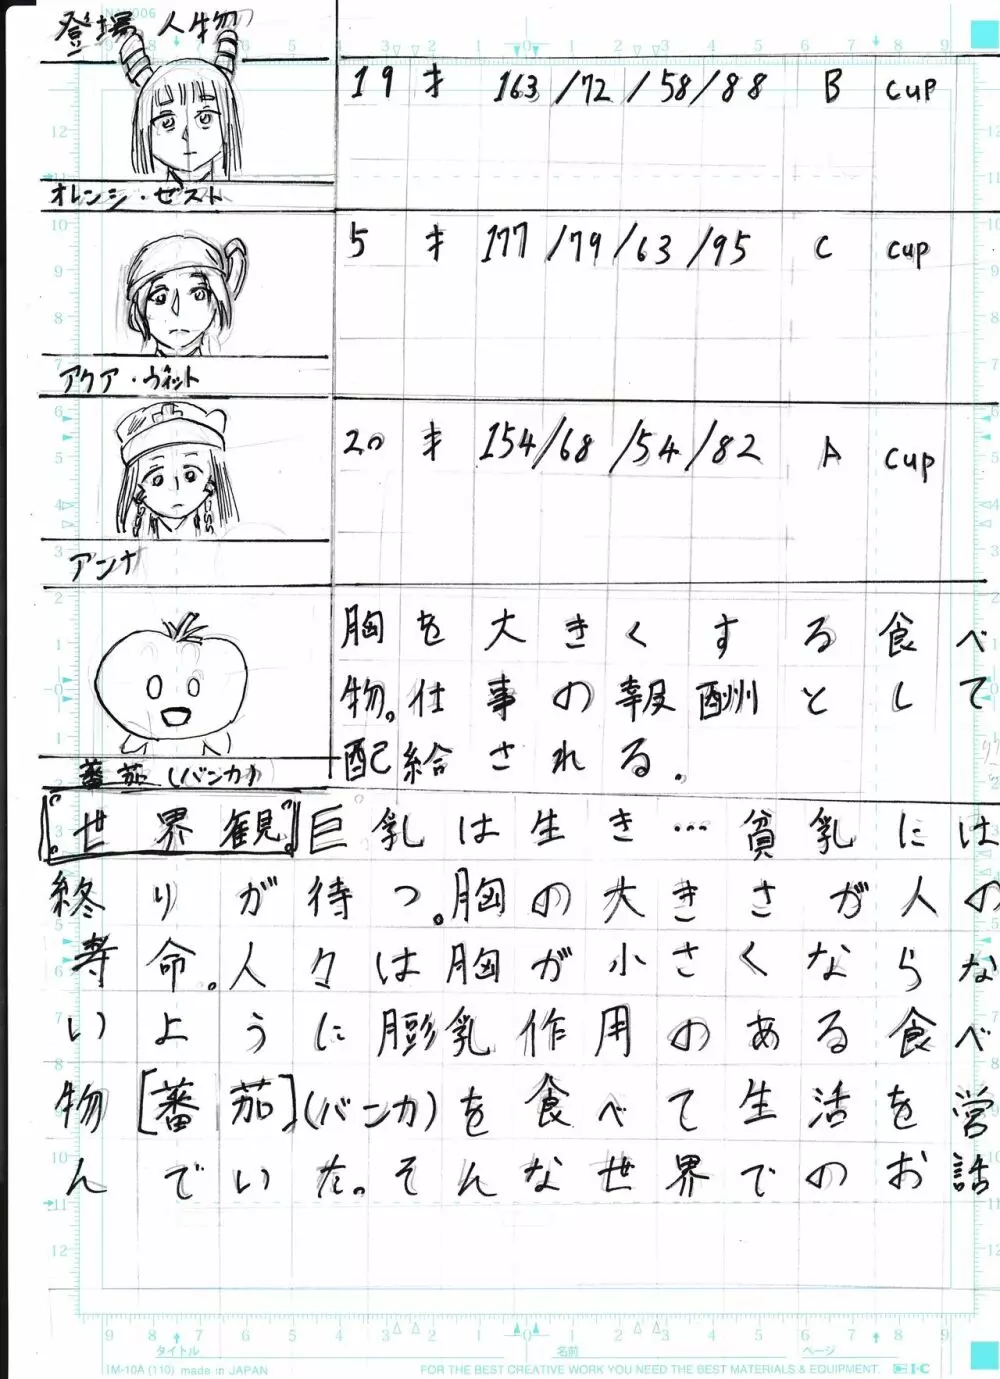 登場人物
19才 163/72/58/88 B cup
オレンジ・ゼスト
5才 177/79/63/95 C cup
アクア・ヴィット
20才 154/68/54/82 A cup
アンナ
胸を大きくする食べ
物。仕事の報酬として
配給される.
蕃茄(バンカ)
〖世界観〗巨乳は生き…貧乳には
終りが待つ。胸の大きさが人の
寿命。人々は胸が小さくならな
いように膨乳作用のある食べ
物[蕃茄](バンカ)を食べて生活を営
んでいた。そんな世界でのお話
タイトル
名前
ページ
IM-10A (110) made in JAPAN
FOR THE BEST CREATIVE WORK YOU NEED THE BEST MATERIALS & EQUIPMENT.